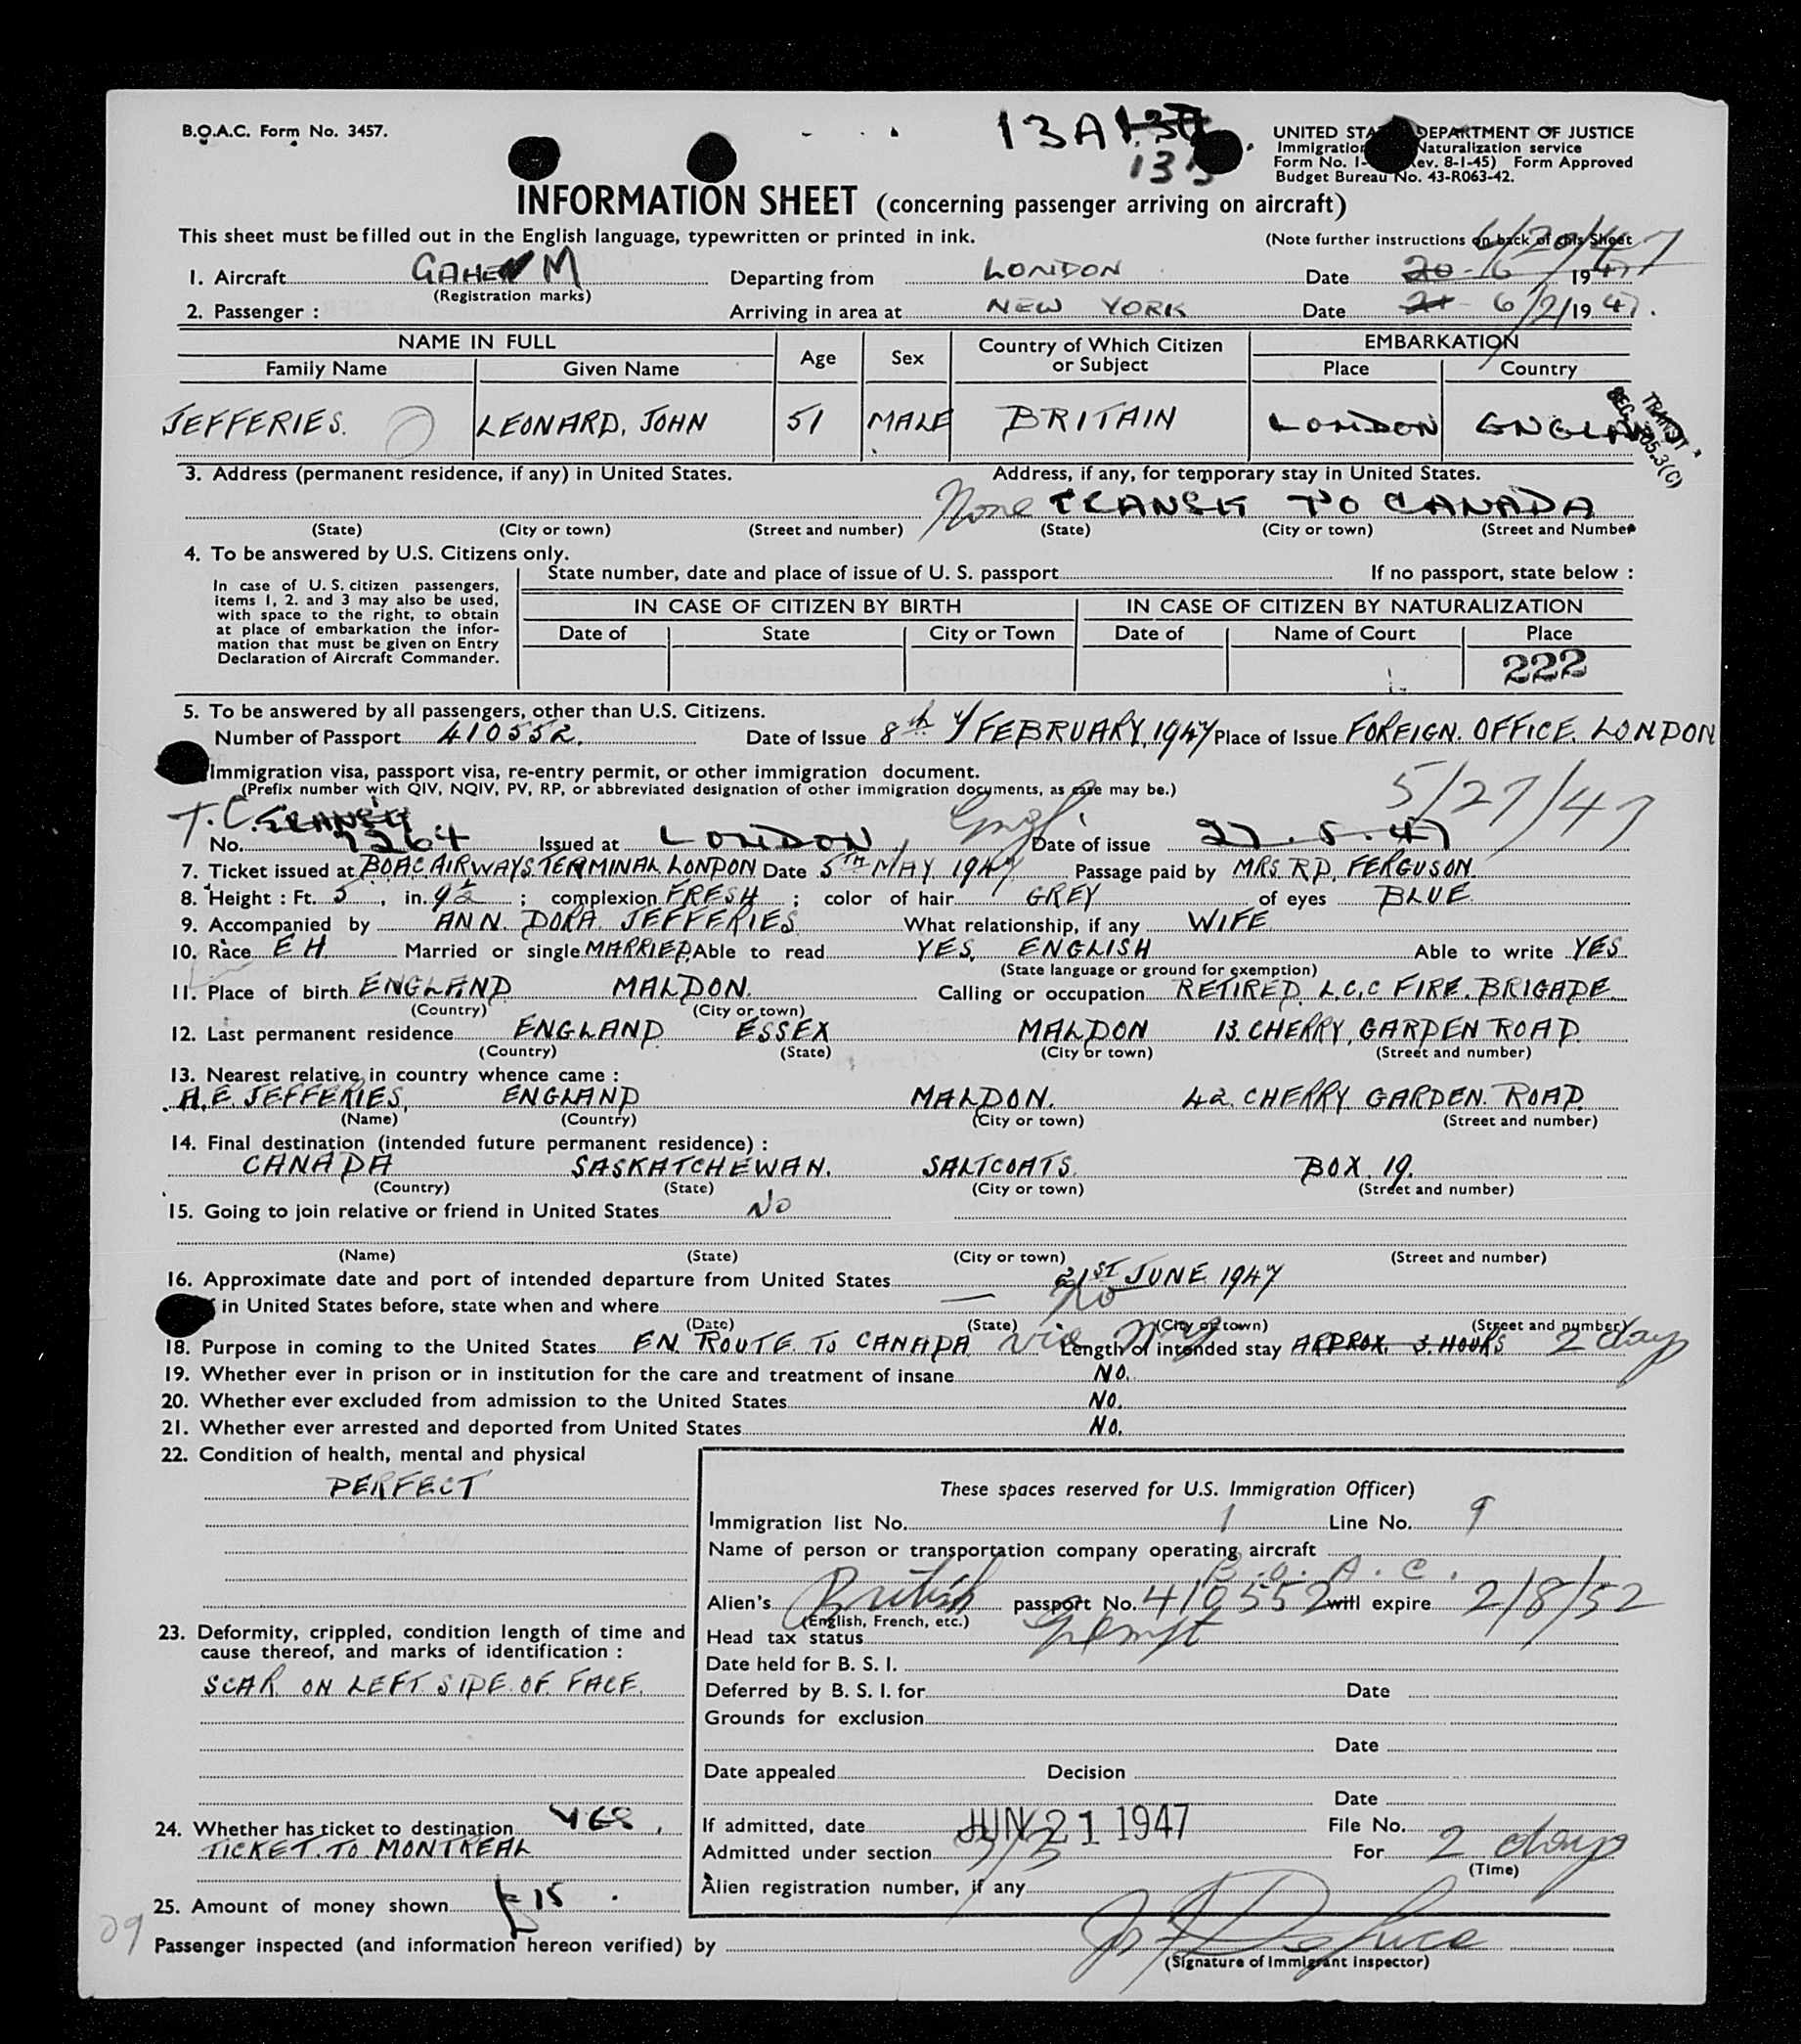 B.O.A.C. Form No. 3457.
13A
UNITED STA DEPARTMENT OF JUSTICE
Immigration Naturalization service
Form No. I- ev. 8-1-45) Form Approved
Budget Bureau No. 43-R063-42.
INFORMATION SHEET (concerning passenger arriving on aircraft)
This sheet must be filled out in the English language, typewritten or printed in ink.
(Note further instructions on back of this Sheet
6/20/47
1. Aircraft GAHE M Departing from LONDON Date 20 - 6 1947
(Registration marks)
2. Passenger : Arriving in area at NEW YORK Date 21 6/21/1947.
NAME IN FULL Age Sex Country of Which Citizen or Subject EMBARKATION
Family Name Given Name Place Country
JEFFERIES. LEONARD, JOHN 51 MALE BRITAIN LONDON ENGLAND
TRANSIT
3. Address (permanent residence, if any) in United States. Address, if any, for temporary stay in United States.
None TRANSIT TO CANADA
(State) (City or town) (Street and number) (State) (City or town) (Street and Number
4. To be answered by U.S. Citizens only.
In case of U.S. citizen passengers, items 1, 2. and 3 may also be used, with space to the right, to obtain at place of embarkation the information that must be given on Entry Declaration of Aircraft Commander.
State number, date and place of issue of U. S. passport If no passport, state below :
IN CASE OF CITIZEN BY BIRTH IN CASE OF CITIZEN BY NATURALIZATION
Date of State City or Town Date of Name of Court Place
222
5. To be answered by all passengers, other than U.S. Citizens.
Number of Passport 410552. Date of Issue 8th FEBRUARY, 1947 Place of Issue FOREIGN. OFFICE. LONDON
Immigration visa, passport visa, re-entry permit, or other immigration document.
(Prefix number with QIV, NQIV, PV, RP, or abbreviated designation of other immigration documents, as case may be.)
5/27/47
T.C. TRANSIT Engl.
No. 9264 Issued at LONDON Date of issue 27. 5. 47
7. Ticket issued at BOAC. AIRWAYS TERMINAL LONDON Date 5TH MAY 1947 Passage paid by MRS. R.D. FERGUSON.
8. Height : Ft. 5, in. 9½ ; complexion FRESH ; color of hair GREY of eyes BLUE
9. Accompanied by ANN. DORA. JEFFERIES What relationship, if any WIFE
10. Race EH. Married or single MARRIED. Able to read YES, ENGLISH Able to write YES.
(State language or ground for exemption)
11. Place of birth ENGLAND MALDON. Calling or occupation RETIRED. L.C.C FIRE. BRIGADE.
(Country) (City or town)
12. Last permanent residence ENGLAND ESSEX MALDON 13. CHERRY, GARDEN ROAD.
(Country) (State) (City or town) (Street and number)
13. Nearest relative in country whence came :
A.E. JEFFERIES, ENGLAND MALDON. 42. CHERRY. GARDEN. ROAD.
(Name) (Country) (City or town) (Street and number)
14. Final destination (intended future permanent residence) :
CANADA SASKATCHEWAN. SALTCOATS. BOX. 19.
(Country) (State) (City or town) (Street and number)
15. Going to join relative or friend in United States No
(Name) (State) (City or town) (Street and number)
16. Approximate date and port of intended departure from United States 21ST JUNE 1947
in United States before, state when and where — No
(Date) (State) (City or town) (Street and number)
18. Purpose in coming to the United States EN. ROUTE. TO CANADA via N.Y. Length of intended stay APPROX. 3. HOURS 2 days
19. Whether ever in prison or in institution for the care and treatment of insane NO.
20. Whether ever excluded from admission to the United States NO.
21. Whether ever arrested and deported from United States NO.
22. Condition of health, mental and physical
PERFECT
23. Deformity, crippled, condition length of time and cause thereof, and marks of identification :
SCAR ON LEFT SIDE. OF. FACE.
24. Whether has ticket to destination YES,
TICKET. TO. MONTREAL
25. Amount of money shown £15.
These spaces reserved for U.S. Immigration Officer)
Immigration list No. 1 Line No. 9
Name of person or transportation company operating aircraft
B. O. A. C.
Alien's British passport No. 410552 will expire 2/8/52
(English, French, etc.)
Head tax status exempt
Date held for B. S. I.
Deferred by B. S. I. for Date
Grounds for exclusion
Date
Date appealed Decision
Date
If admitted, date JUN 21 1947 File No.
Admitted under section 3/3 For 2 days
(Time)
Alien registration number, if any
09
Passenger inspected (and information hereon verified) by
(Signature of Immigrant inspector)